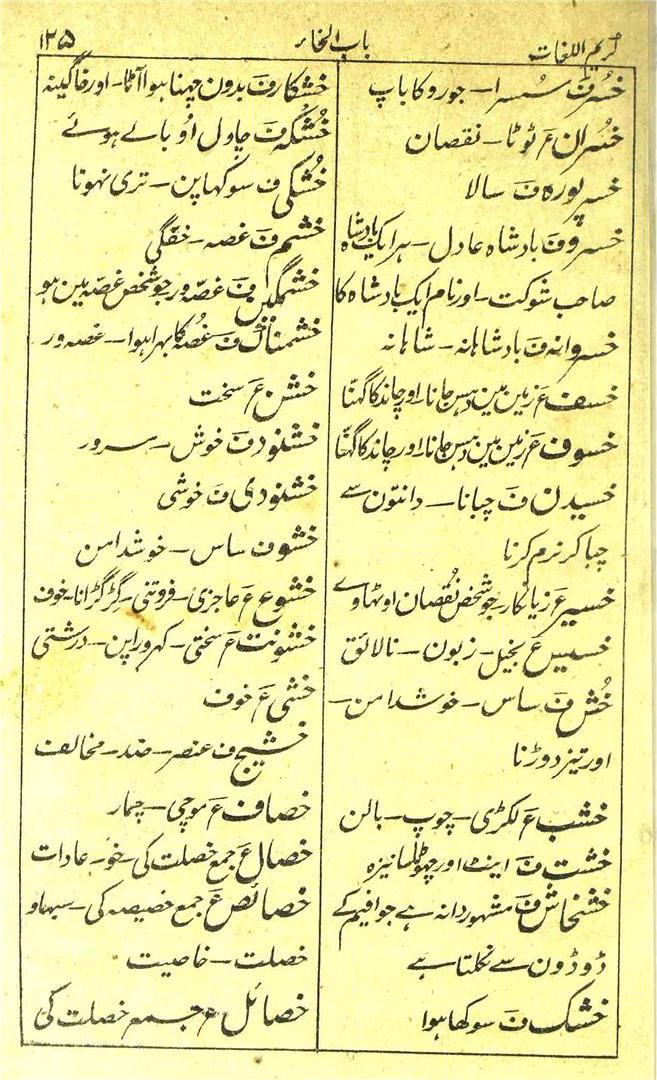 کریم اللغات
باب الخاء
۱۲۵
خُسر ف سُسرا - جورو کا باپ
خُسران ع ٹوٹا - نقصان
خسرپورہ ف سالا
خسرو ف بادشاہ عادل - ہر ایک بادشاہ
صاحب شوکت - اور نام ایک بادشاہ کا
خسروانہ ف بادشاہانہ - شاہانہ
خسف ع زمین مین دہس جانا - اور چاند کا گہنّا
خسوف ع زمین مین دہس جانا - اور چاند کا گہنّا
خسیدن ف چبانا - دانتون سے
چبا کر نرم کرنا
خسیر ع زیانکار - جو شخص نقصان اوٹہاوے
خسیس ع بخیل - زبون - نالائق
خُش ف ساس - خوشدامن -
اور تیز دوڑنا
خشب ع لکڑی - چوب - بالن
خشت ف اینٹ اور چہوٹا سا نیزہ
خشخاش ف مشہور دانہ ہے جو افیم کے
ڈوڈون سے نکلتا ہے
خشک ف سوکھا ہوا
خشکار ف بدون چہنا ہوا آٹا - اور خاگینہ
خُشکہ ف چاول اُوبالے ہوئے
خُشکی ف سوکہاپن - تری نہونا
خشم ف غصہ - خفگی
خشمگیں ف غصّہ ور جو شخص غصّہ مین ہو
خشمناک ف غُصہ کا بہرا ہوا - غصہ ور
خشن ع سخت
خشنود ف خوش - مسرور
خشنودی ف خوشی
خشو ف ساس - خوشدامن
خشوع ع عاجزی - فروتنی - گڑگڑانا - خوف
خشونت ع سختی - کہروراپن - درشتی
خشی ع خوف
خشیج ف عنصر - ضد - مخالف
خصاف ع موچی - چمار
خصال ع جمع خصلت کی - خو - عادات
خصائص ع جمع خصیصہ کی - سبہاو
خصلت - خاصیت
خصائل ع جمع خصلت کی